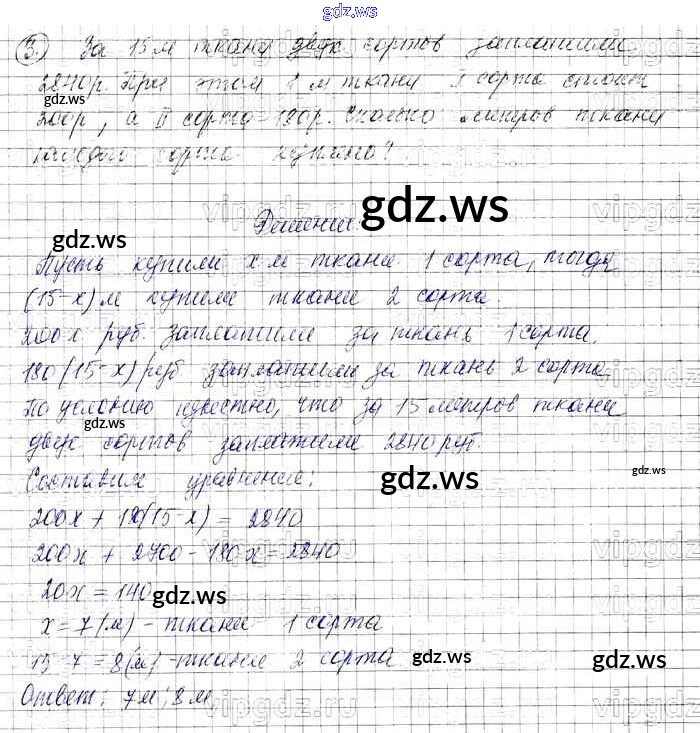 gdz.ws
3. За 15 м ткани двух сортов заплатили
2840р. При этом 1 м ткани I сорта стоит
gdz.ws
200р, а II сорта 180р. Сколько метров ткани
каждого сорта куплено?
gdz.ws
Решение:
gdz.ws
Пусть купили х м ткани 1 сорта, тогда
(15-х) м купили ткани 2 сорта.
200х руб. заплатили за ткань 1 сорта.
180(15-х) руб заплатили за ткань 2 сорта.
По условию известно, что за 15 метров ткани
gdz.ws
двух сортов заплатили 2840 руб.
gdz.ws
Составим уравнение:
gdz.ws
200х + 180(15-х) = 2840
200х + 2700 - 180х = 2840
20х = 140
gdz.ws
х = 7 (м) - ткани 1 сорта
15-7 = 8(м) - ткани 2 сорта
gdz.ws
gdz.ws
Ответ: 7м; 8м
gdz.ws